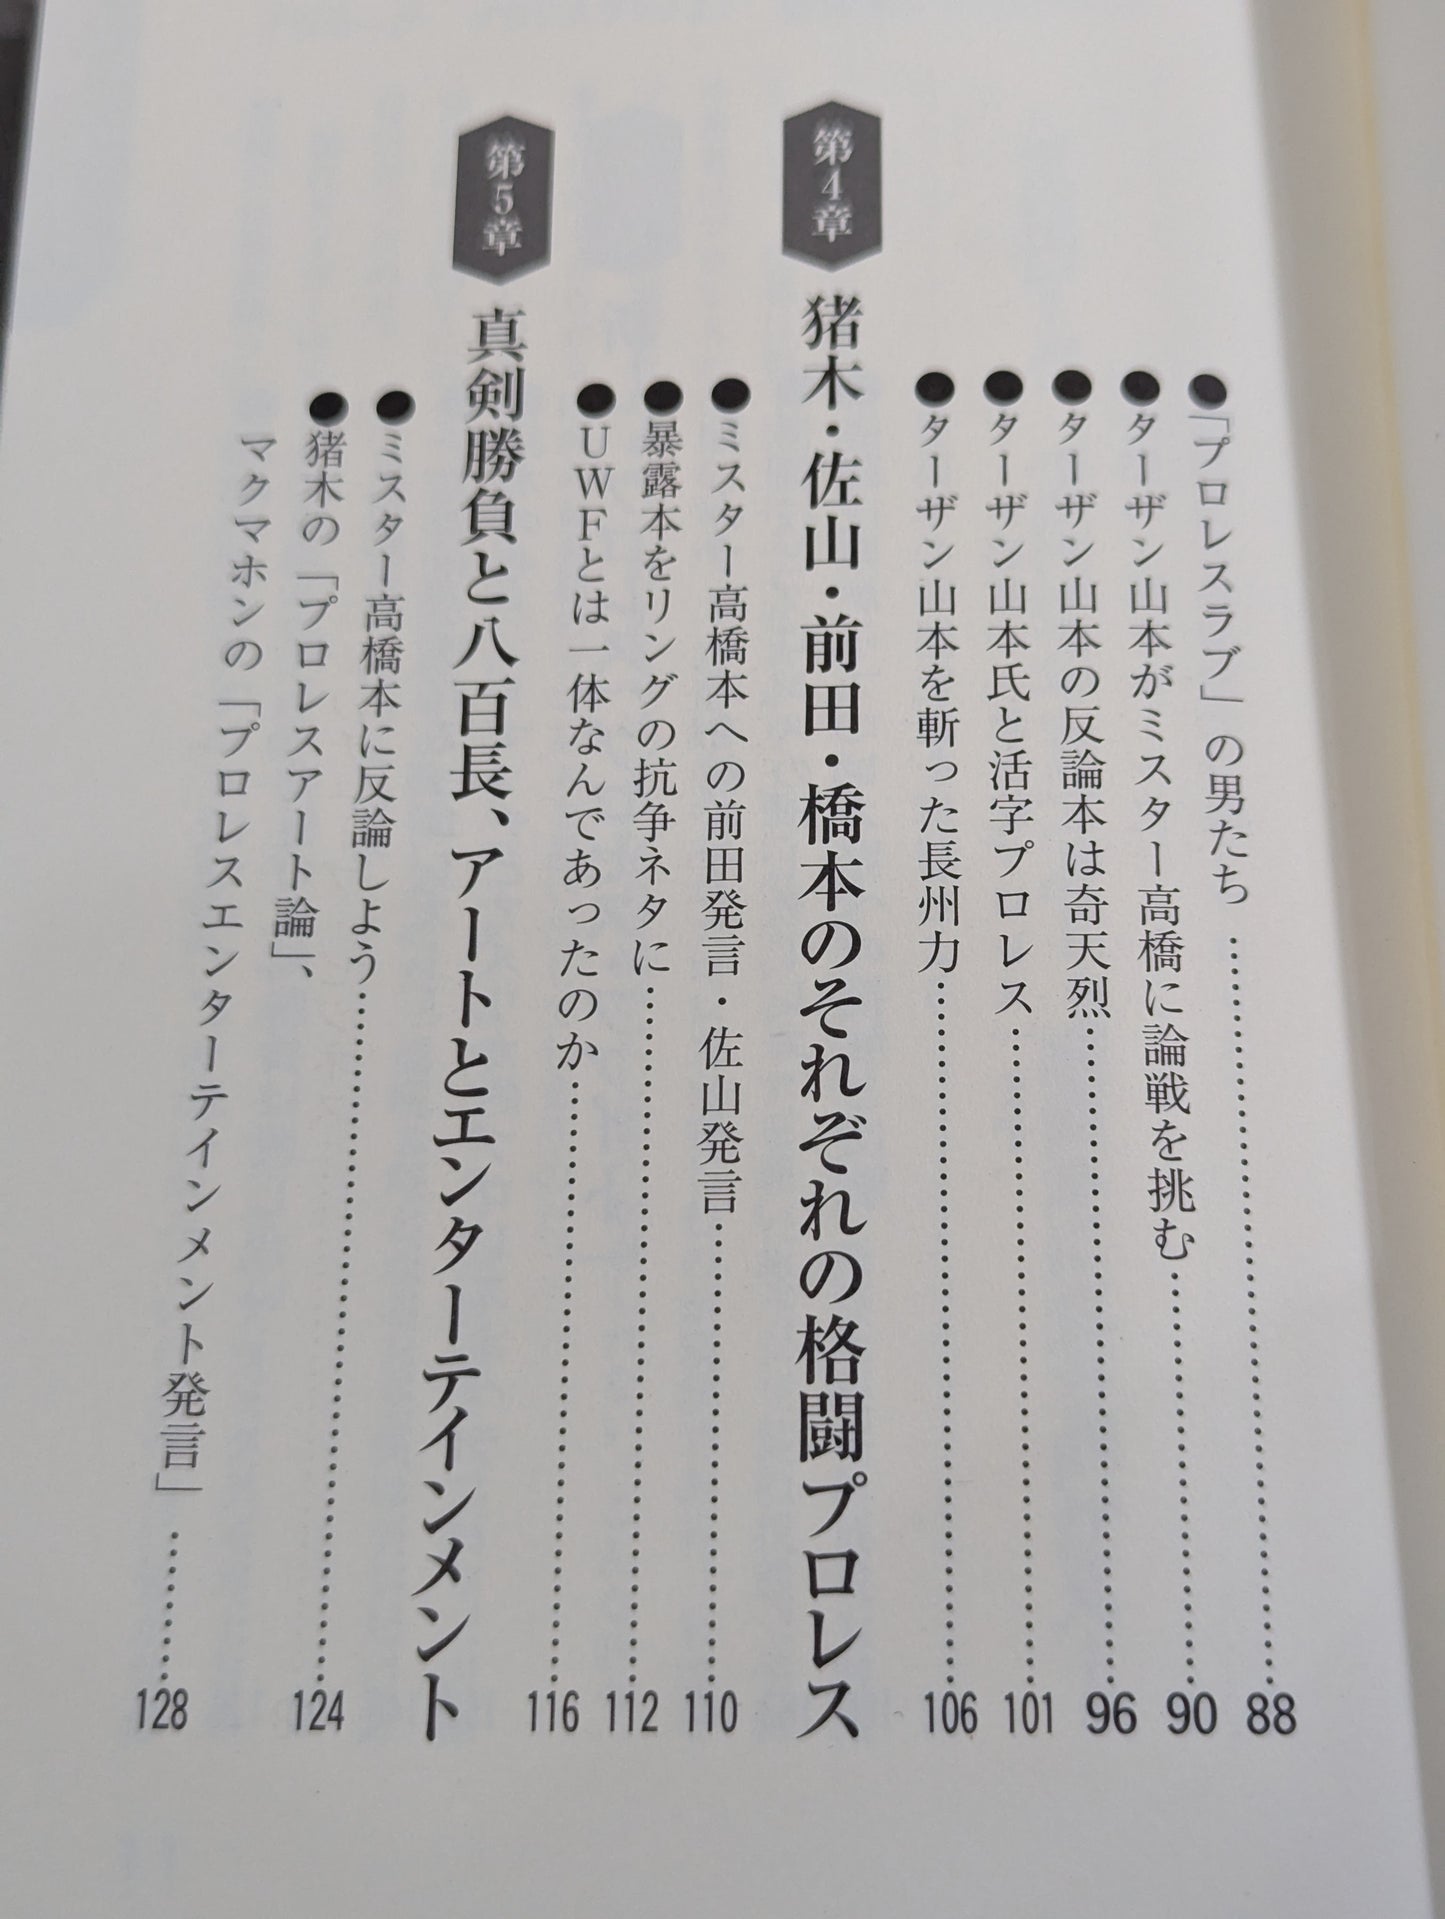 ●「プロレスラブ」の男たち……88
●ターザン山本がミスター高橋に論戦を挑む……90
●ターザン山本の反論本は奇天烈……96
●ターザン山本氏と活字プロレス……101
●ターザン山本を斬った長州力……106
第4章 猪木・佐山・前田・橋本のそれぞれの格闘プロレス
●ミスター高橋本への前田発言・佐山発言……110
●暴露本をリングの抗争ネタに……112
●UWFとは一体なんであったのか……116
第5章 真剣勝負と八百長、アートとエンターテインメント
●ミスター高橋本に反論しよう……124
●猪木の「プロレスアート論」、
マクマホンの「プロレスエンターテインメント発言」……128